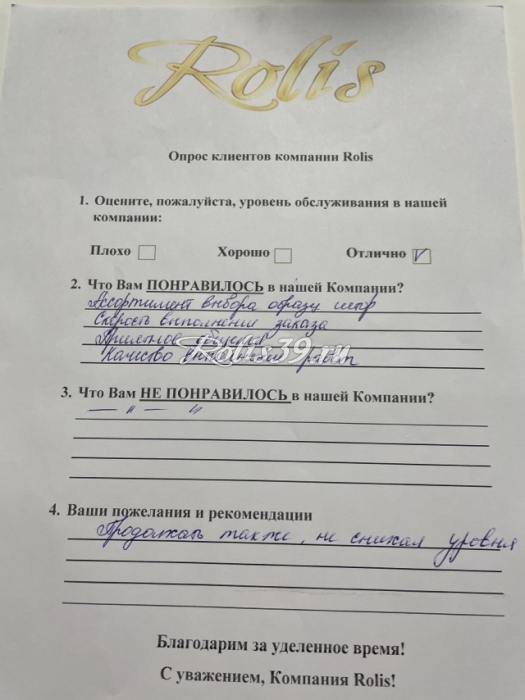 Rolis
Опрос клиентов компании Rolis
1. Оцените, пожалуйста, уровень обслуживания в нашей
компании:
Плохо Хорошо Отлично
2. Что Вам ПОНРАВИЛОСЬ в нашей Компании?
Ассортимент выбора образц
Скорость выполнения заказа
Rolis39.ru
Качество выполнения работ
3. Что Вам НЕ ПОНРАВИЛОСЬ в нашей Компании?
— " — "
4. Ваши пожелания и рекомендации
Продолжать также, не снижая уровня
Благодарим за уделенное время!
С уважением, Компания Rolis!